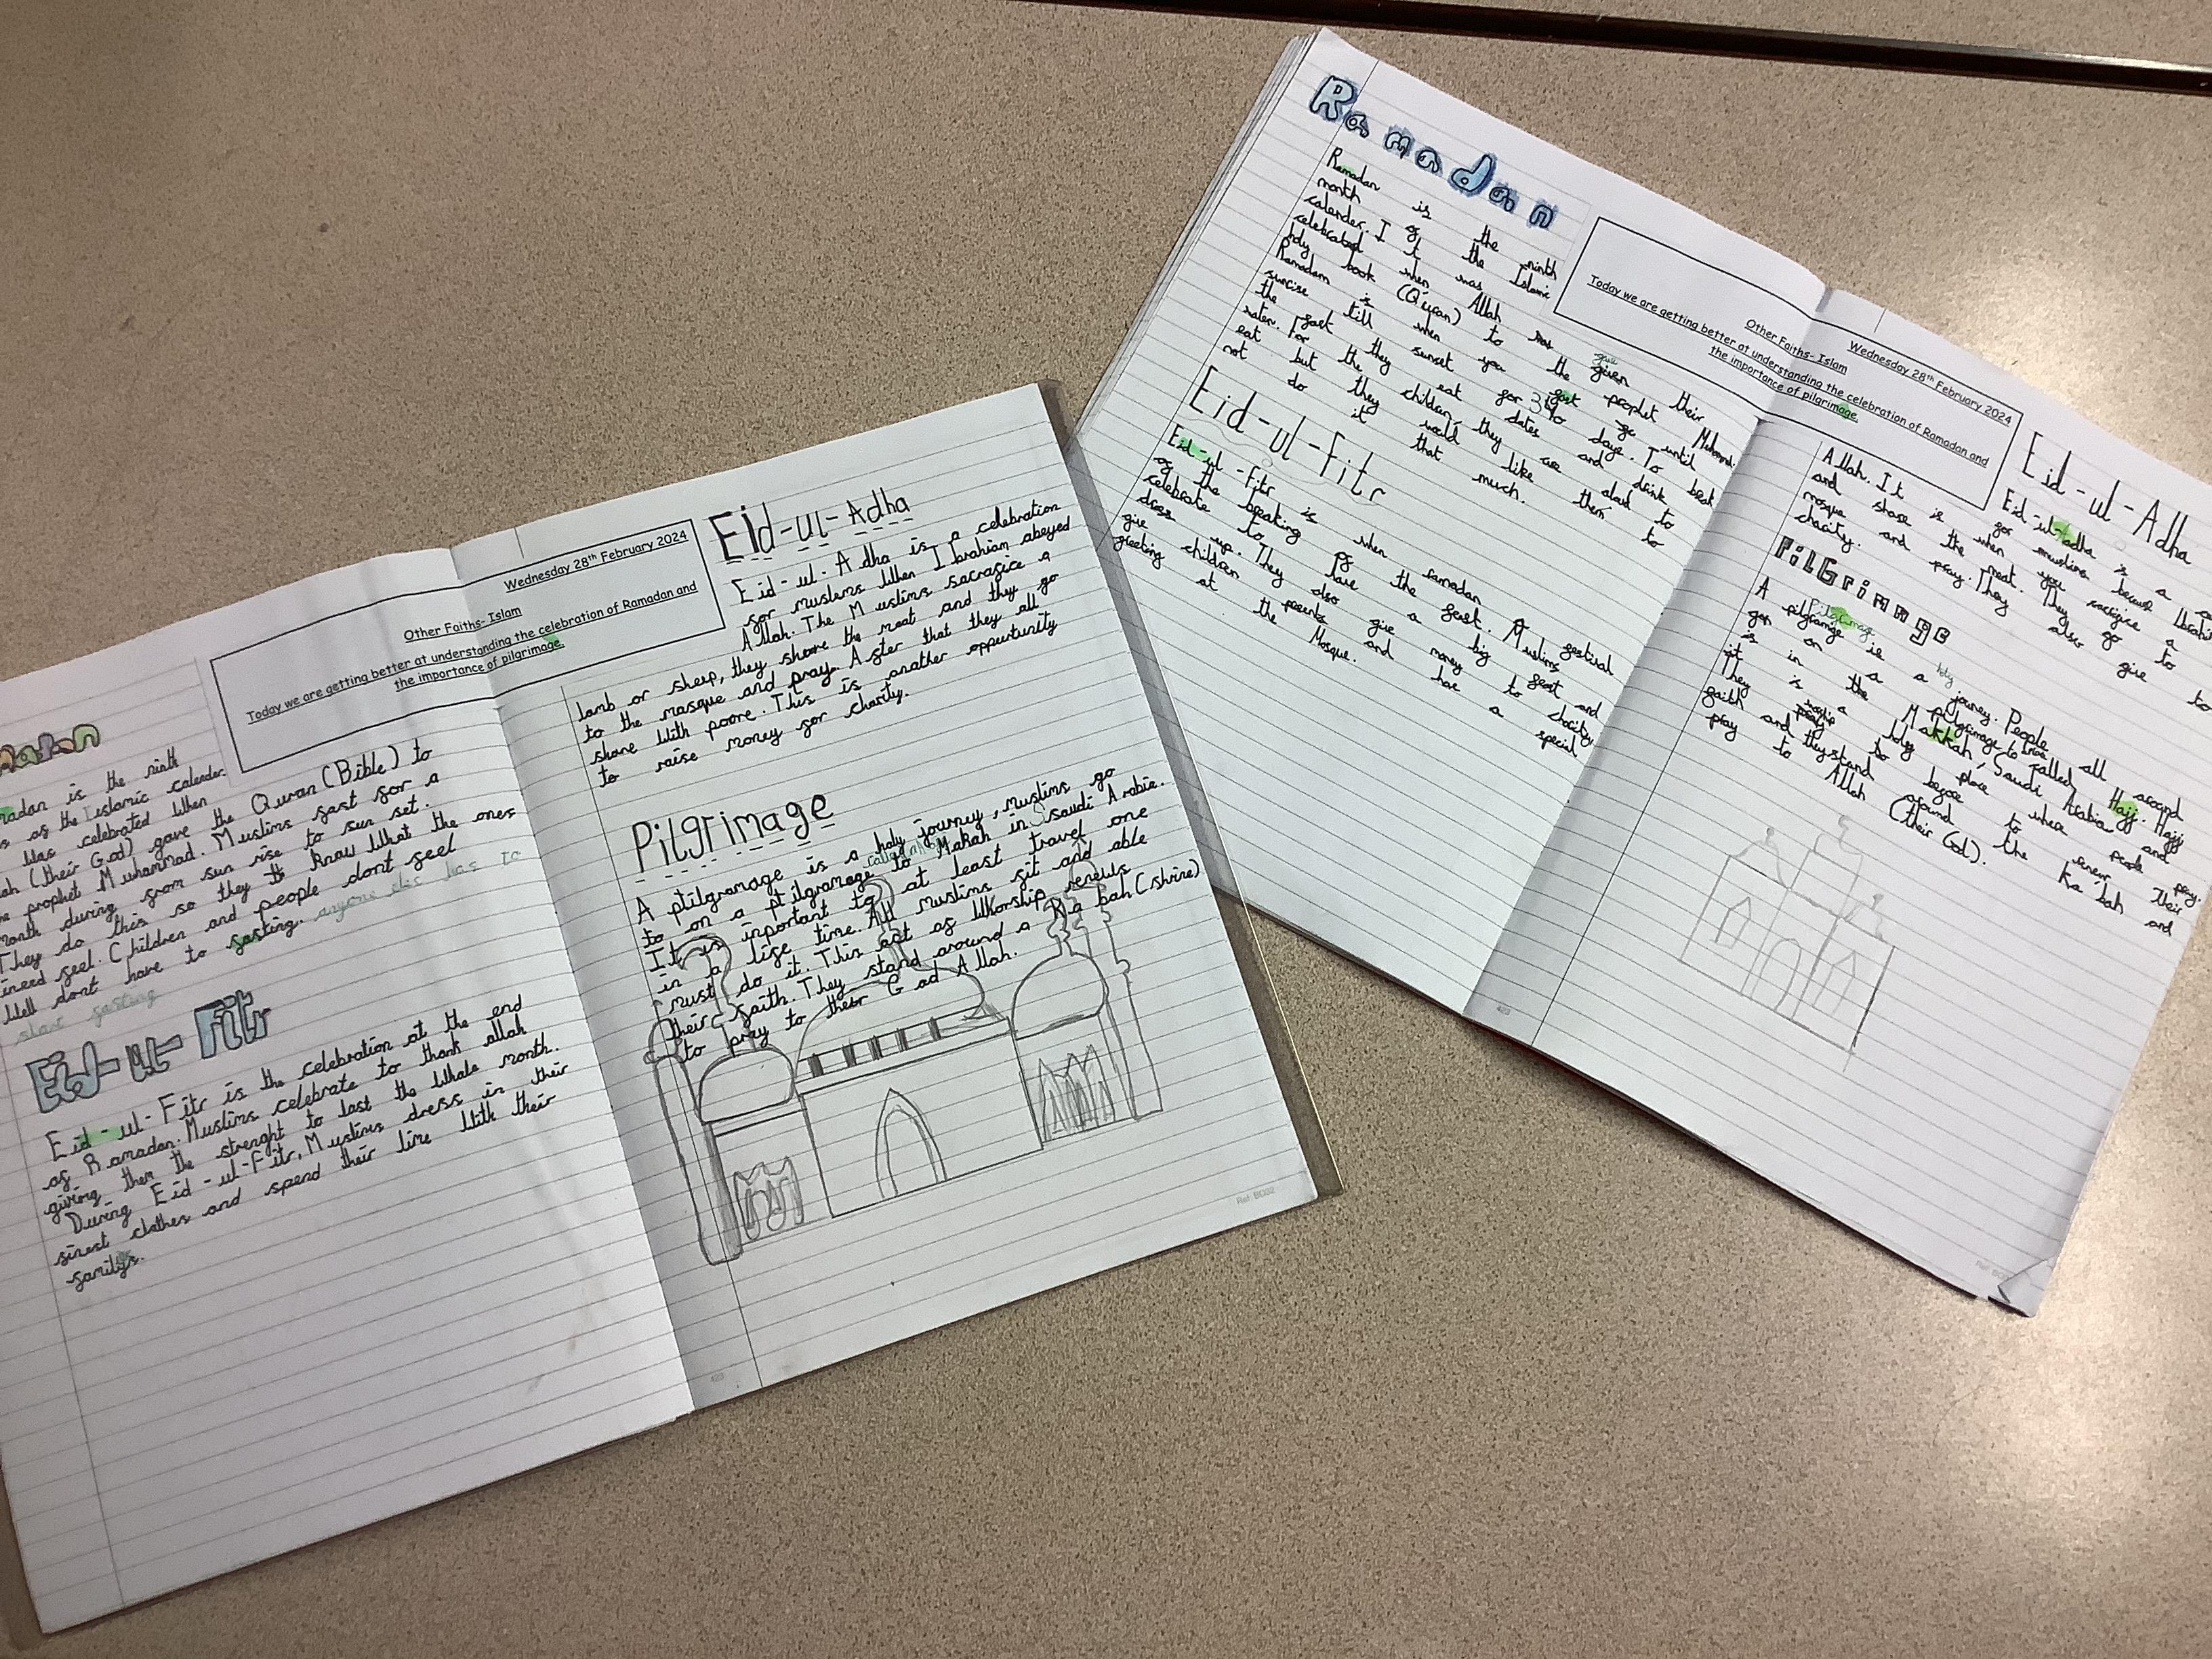 Wednesday 28th February 2024
Other Faiths- Islam
Today we are getting better at understanding the celebration of Ramadan and
the importance of pilgrimage.
madan is the ninth
as the Islamic calendar.
was celebrated when
ah (their God) gave the Quran (Bible) to
prophet Muhammad. Muslims fast for a
month during from sun rise to sun set.
They do this so they know what the ones
ineed feel. Children and people dont feel
well dont have to fasting. anyone els has to
start fasting
Eid-ul-Fitr
Eid-ul-Fitr is the celebration at the end
of Ramadan. Muslims celebrate to thank allah
giving them the strenght to last the whole month.
During Eid-ul-Fitr, Muslims dress in their
finest clothes and spend their time with their
familys.
Eid-ul-Adha
Eid-ul-Adha is a celebration
for muslems when Ibrahiam obeyed
Allah. The Muslims sacrafice a
lamb or sheep, they share the meat and they go
to the masque and pray. After that they all go
share with poore. This is another oppurtunity
to raise money for charity.
Pilgrimage
A ptilgramage is a holy journey, muslims go
to on a ptilgramage to Makah in Saudi Arabia.
It is inportant to at least travel one
in a life time. All muslims fit and able
must do it. This act of whorship renews
their faith. They stand around a Ka bah (shrine)
to pray to their God Allah.
Ref: BG32
423
Ramadan
Ramadan is the ninth
month of the Islamic
calender. It was
celebrated when Allah given their
holy book (Quran) to the prophet
Ramadam is when you fast until
suncise till sunset for 30 days. To
the fast they eat dates and drink
water. For the children they are aloud to
eat but they would like them to
not do it that much.
Eid-ul-Fitr
Eid-ul-Fitr is when ramadan
of the breaking of the fast. Muslims festival
celebrate to have a big feast and
dress up. They also give money to charity
give children presents and hae a special
greeting at the Mosque.
Wednesday 28th February 2024
Other Faiths- Islam
Today we are getting better at understanding the celebration of Ramadan and
the importance of pilgrimage.
Eid-ul-Adha
Eid-ul-Adha is a
for muslims because
Allah. It is when you sacrifice a
and share the meat. They go to
mosque and pray. They also give to
charity.
PilGrimage
A pilgramge is a holy journey. People all around
gon on a pilgramage to called Hajj. Hajj
is in the Makkah, Saudi Arabia and
it is a holy place where people pray.
They to renew their
faith and they stand around the Ka'bah and
pray to Allah (their God).
423